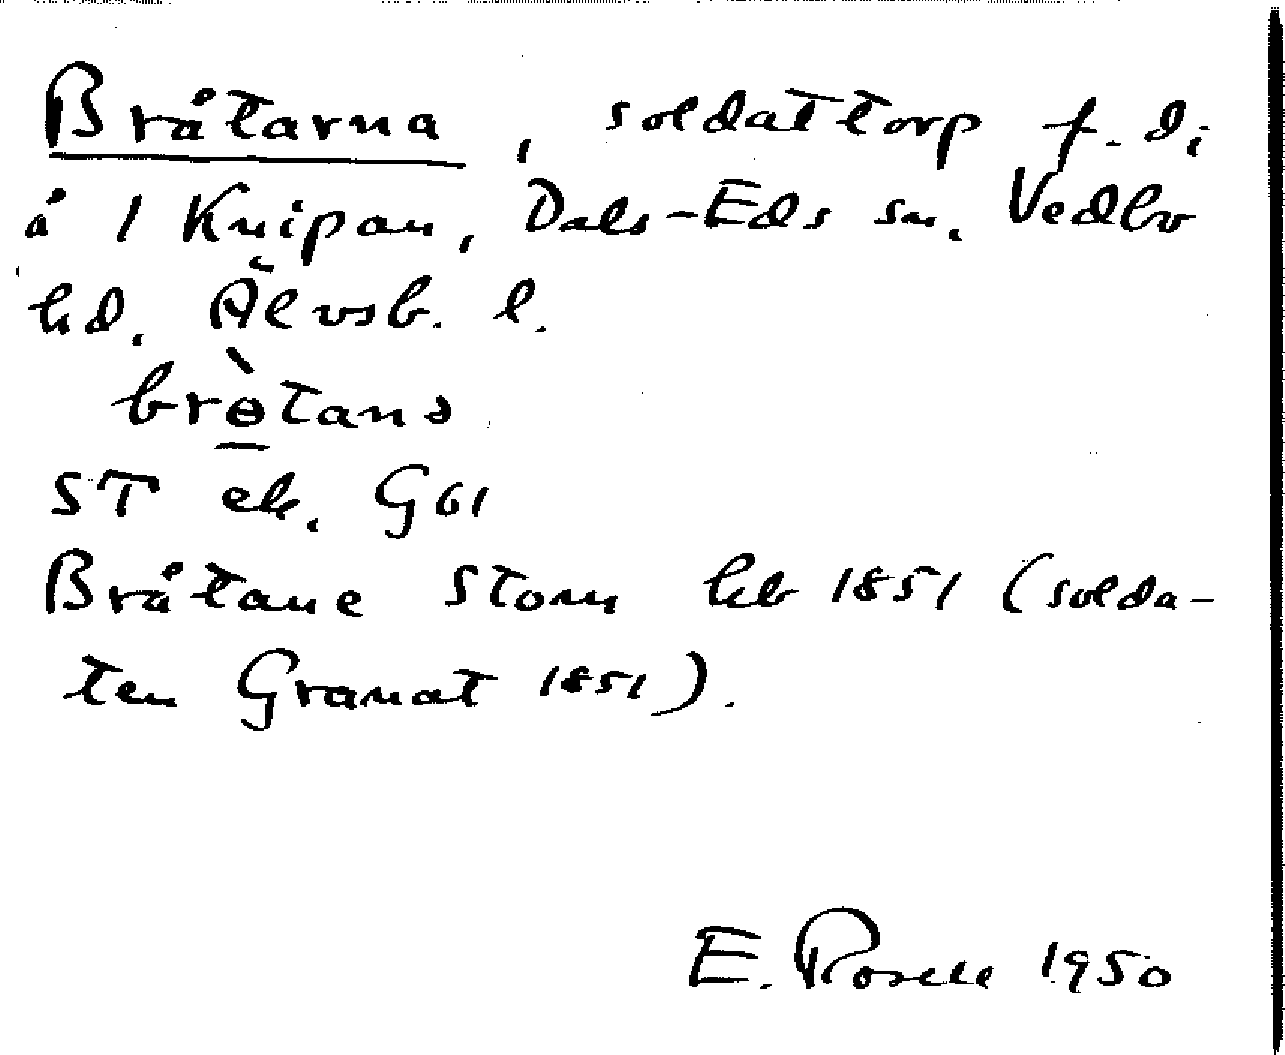 Bråtarna, soldattorp f.d.
å 1 Knipan, Dals-Eds sn. Vedbo
hd. Älvsb. l.
brɵ̀tanə
ST ek. G61
Bråtane Stom hb 1851 (solda-
ten Granat 1851).
E. Rosell 1950